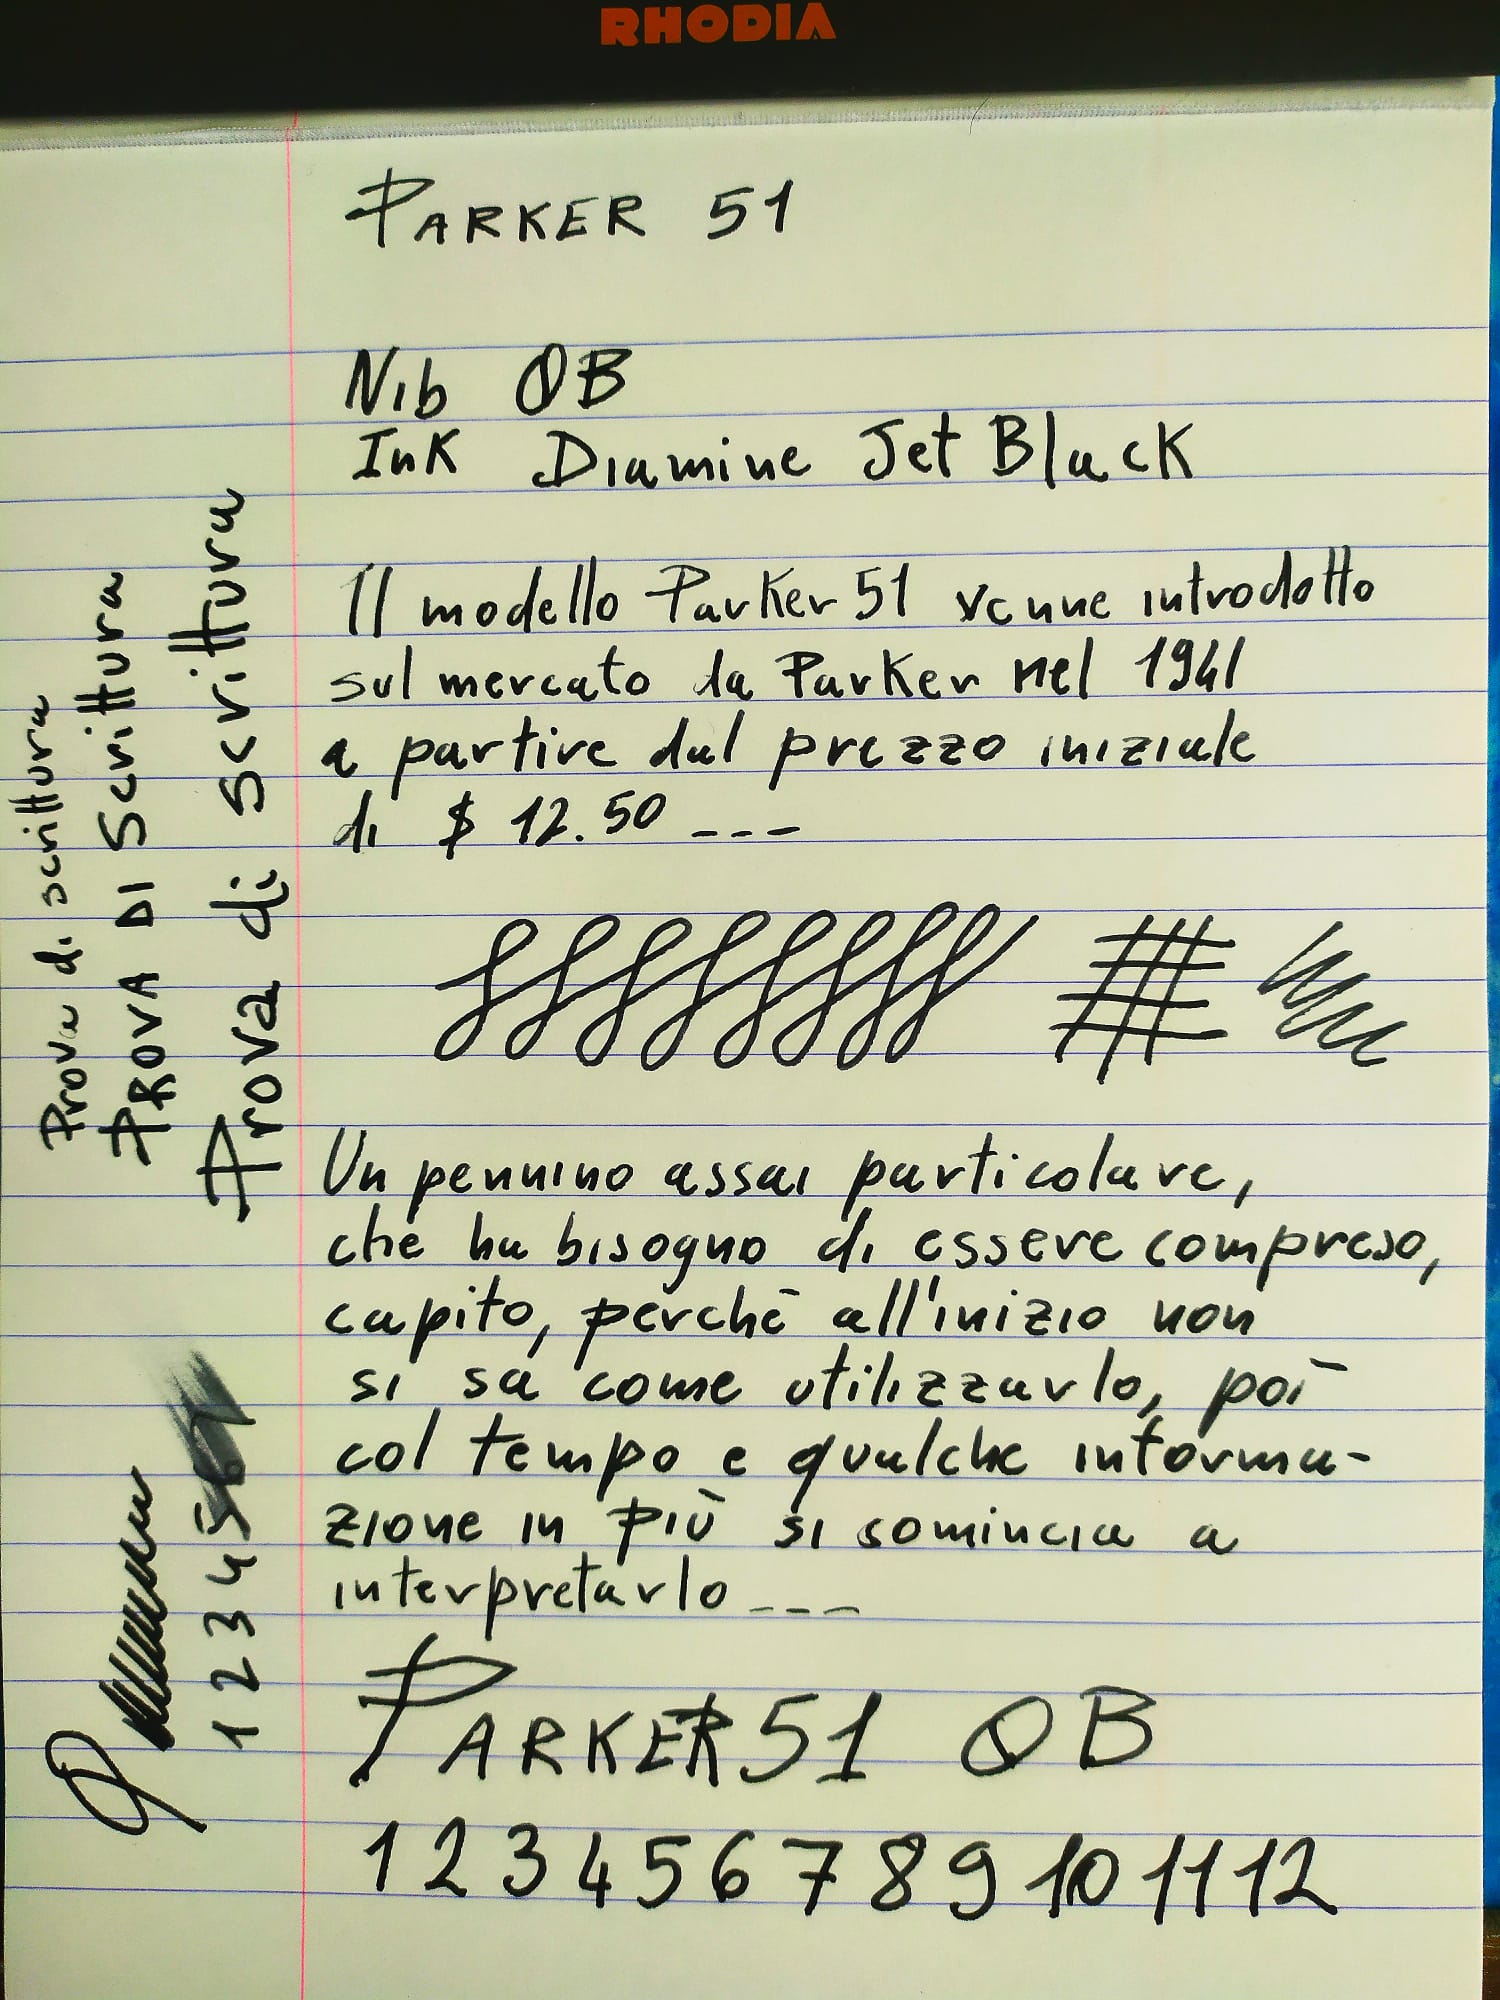 RHODIA
PARKER 51
Nib OB
Ink Diamine Jet Black
Il modello Parker 51 venne introdotto
sul mercato da Parker nel 1941
a partire dal prezzo iniziale
di $ 12.50 ---
Un pennino assai particolare,
che ha bisogno di essere compreso,
capito, perchè all'inizio non
si sa come utilizzarlo, poi
col tempo e qualche informa-
zione in più si comincia a
interpretarlo ---
PARKER 51 OB
1 2 3 4 5 6 7 8 9 10 11 12
Prova di scrittura
PROVA DI Scrittura
Prova di scrittura
1 2 3 4 5 6 7